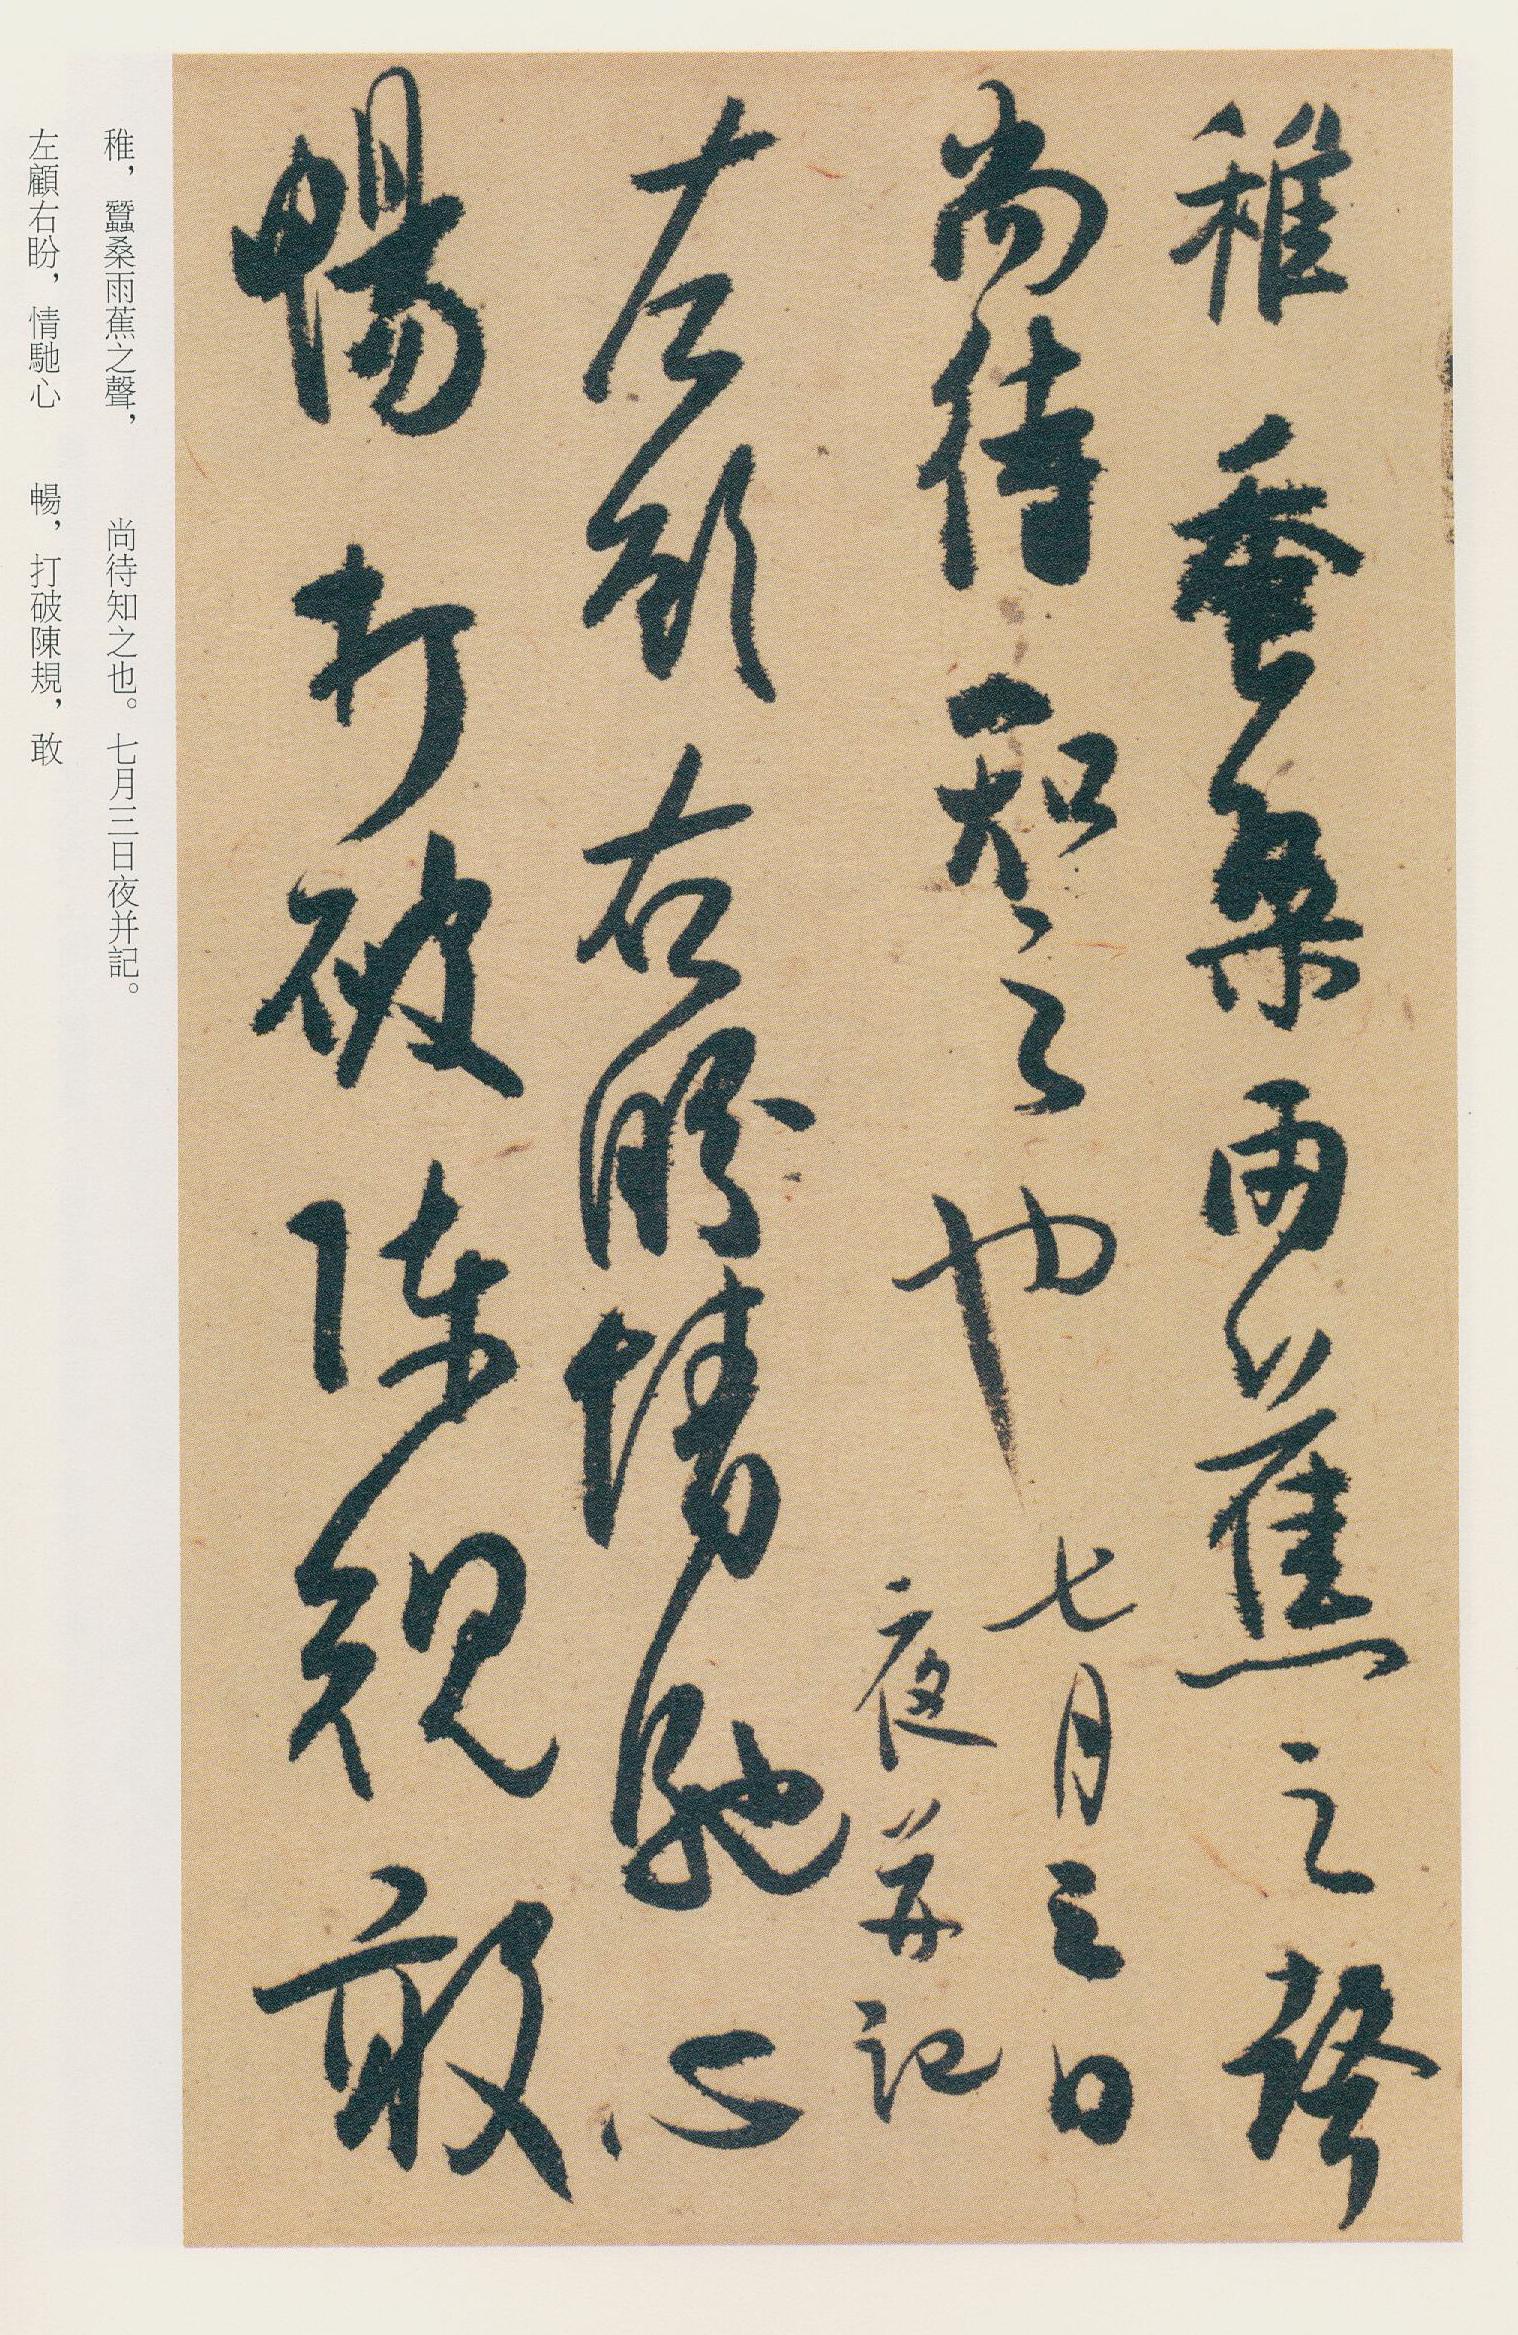 稚蚕桑雨蕉之聲
尚待知之也七月三日
夜并記
左顧右盼情馳心
暢打破陳規敢
稚，蠶桑雨蕉之聲，　尚待知之也。七月三日夜并記。
左顧右盼，情馳心　暢，打破陳規，敢